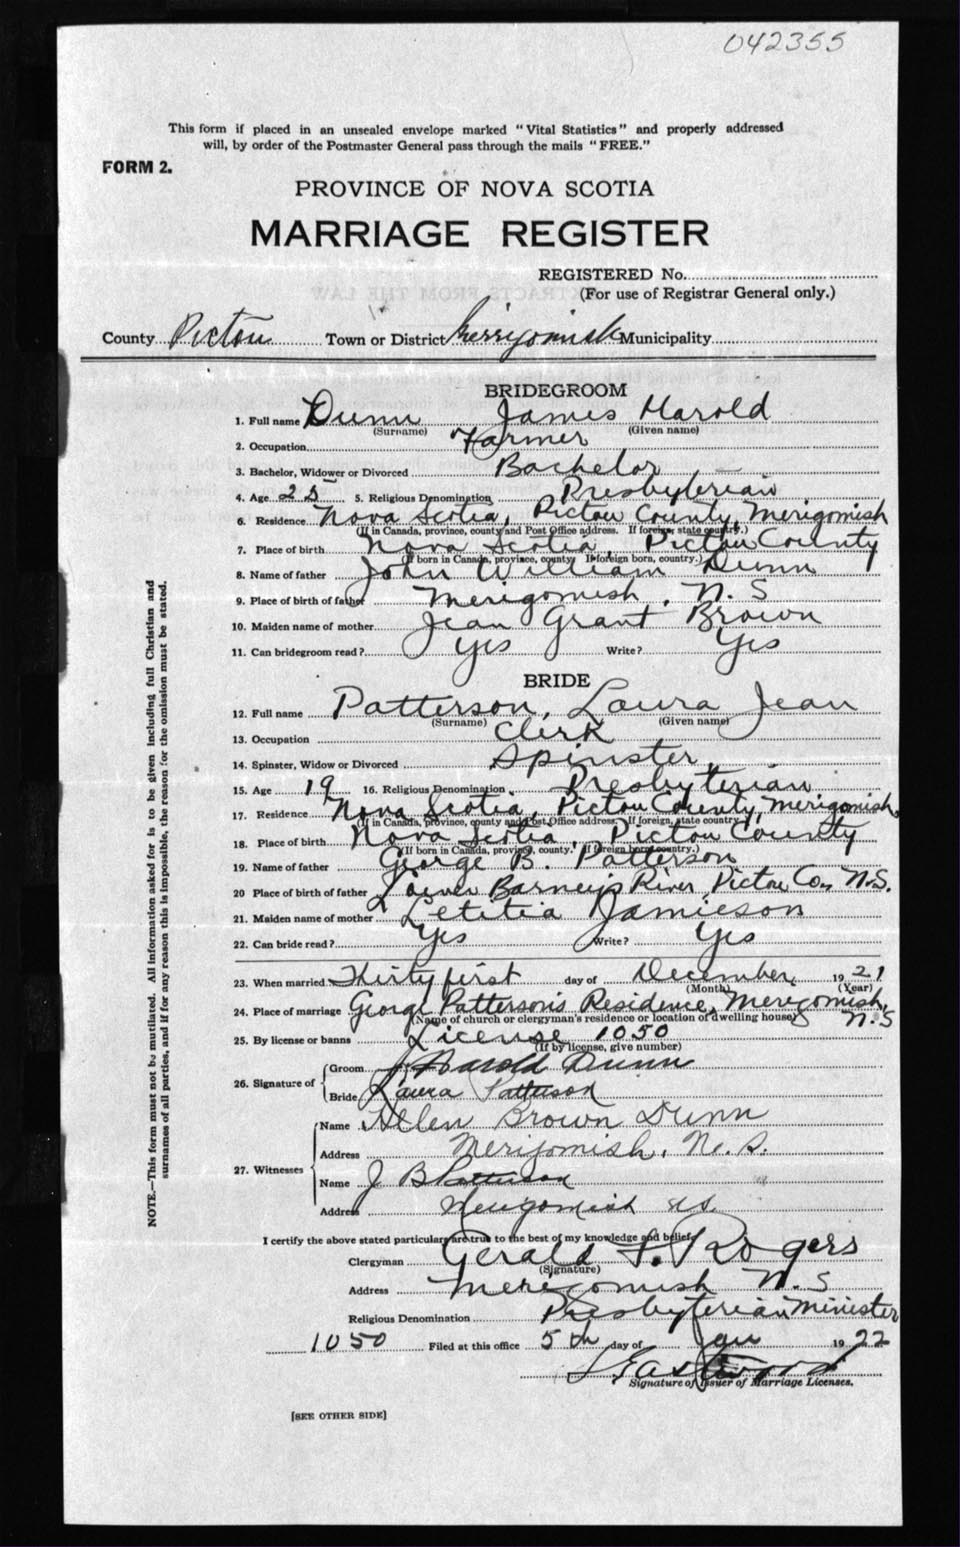 042355
This form if placed in an unsealed envelope marked "Vital Statistics" and properly addressed
will, by order of the Postmaster General pass through the mails "FREE."
FORM 2.
PROVINCE OF NOVA SCOTIA
MARRIAGE REGISTER
REGISTERED No.
(For use of Registrar General only.)
County Pictou Town or District Merrigomish Municipality
BRIDEGROOM
1. Full name Dunn James Harold
(Surname) (Given name)
2. Occupation Farmer
3. Bachelor, Widower or Divorced Bachelor
4. Age 25 5. Religious Denomination Presbyterian
6. Residence Nova Scotia, Pictou County, Merigomish
(If in Canada, province, county and Post Office address. If foreign, state country.)
7. Place of birth Nova Scotia, Pictou County
(If born in Canada, province, county. If foreign born, country.)
8. Name of father John William Dunn
9. Place of birth of father Merigomish, N.S
10. Maiden name of mother Jean Grant Brown
11. Can bridegroom read? Yes Write? Yes
BRIDE
12. Full name Patterson, Laura Jean
(Surname) (Given name)
13. Occupation Clerk
14. Spinster, Widow or Divorced Spinster
15. Age 19 16. Religious Denomination Presbyterian
17. Residence Nova Scotia, Pictou County, Merigomish
(If in Canada, province, county and Post Office address. If foreign, state country.)
18. Place of birth Nova Scotia, Pictou County
(If born in Canada, province, county. If foreign born, country.)
19. Name of father George B. Patterson
20 Place of birth of father Lower Barney's River Pictou Co, N.S.
21. Maiden name of mother Letitia Jamieson
22. Can bride read? Yes Write? Yes
23. When married Thirty first day of December 1921
(Month) (Year)
24. Place of marriage George Patterson's Residence, Merigomish, N.S
(Name of church or clergyman's residence or location of dwelling house)
25. By license or banns License 1050
(If by license, give number)
26. Signature of Groom J Harold Dunn
Bride Laura Patterson
27. Witnesses Name Allen Brown Dunn
Address Merigomish, N.S.
Name J B Patterson
Address Merigomish NS.
I certify the above stated particulars are true to the best of my knowledge and belief,
Clergyman Gerald F. Rogers
(Signature)
Address Merigomish N.S
Religious Denomination Presbyterian Minister
1050 Filed at this office 5th day of Jan 1922
Eastwood
Signature of Issuer of Marriage Licenses.
[SEE OTHER SIDE]
NOTE.—This form must not be mutilated. All information asked for is to be given including full Christian and
surnames of all parties, and if for any reason this is impossible, the reason for the omission must be stated.